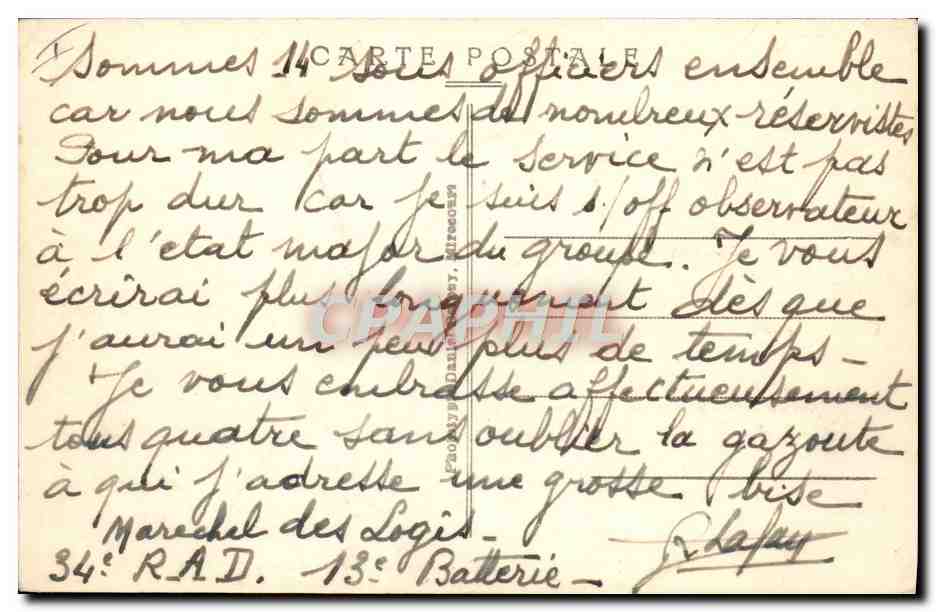 CARTE POSTALE
Sommes 14 sous officiers ensemble
car nous sommes de nombreux réservistes
Pour ma part le service n'est pas
trop dur car je suis s/off observateur
à l'état major du groupe. Je vous
écrirai plus longuement dès que
j'aurai un peu plus de temps -
Je vous embrasse affectueusement
tous quatre sans oublier la gazoute
à qui j'adresse une grosse bise
Marechel des Logis -
34e R.A.D. 13e Batterie -
G Lafay
Phototypie Daniel Mirecourt
CPAPHIL